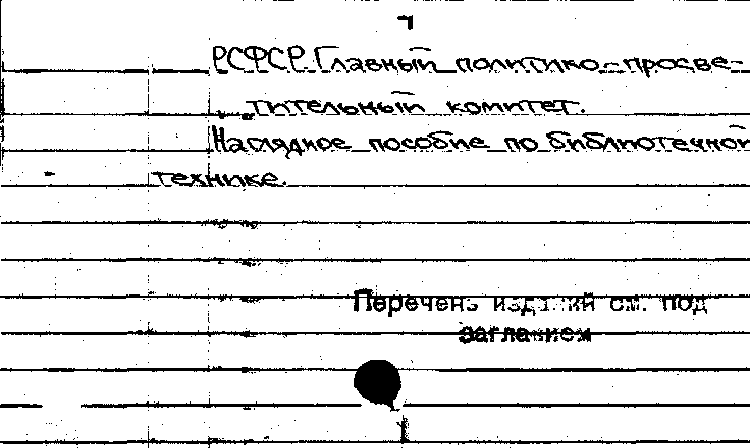 РСФСР. Главный политико-просве-
тительный комитет.
Наглядное пособие по библиотечной
технике.
Перечень изданий см. под
заглавием